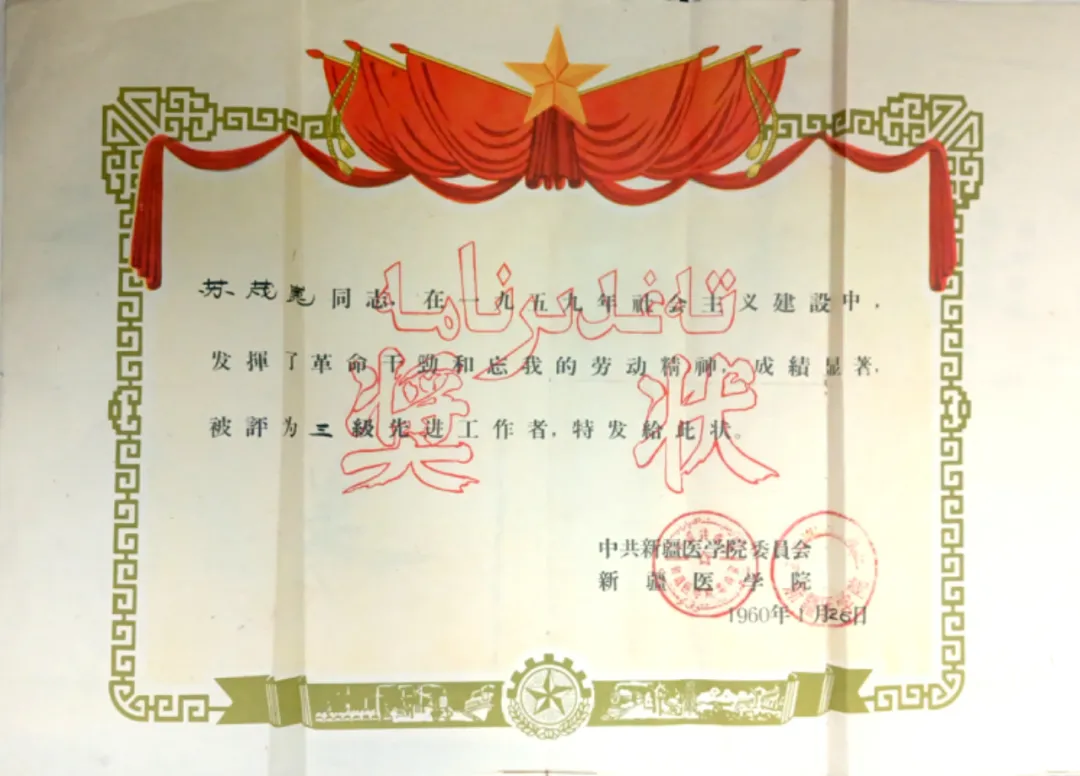 تەغدىرنامە
奬状
苏茂同志，在一九五九年社会主义建設中，
发揮了革命干勁和忘我的劳动精神，成績显著，
被評为三級先进工作者，特发給此状。
中共新疆医学院委員会
新疆医学院
1960年1月26日